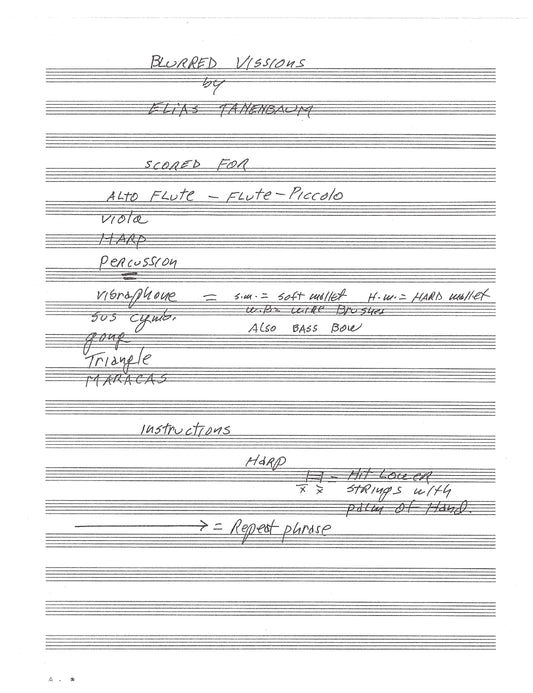 BLURRED VISSIONS
by
ELIAS TANENBAUM
SCORED FOR
ALTO FLUTE – FLUTE – PICCOLO
VIOLA
HARP
PERCUSSION
vibraphone = s.m. = soft mallet H.m. = HARD mallet
sus cymb. W.B = WIRE Brushes
gong ALSO BASS BOW
Triangle
MARACAS
Instructions
HARP
= Hit Lower
x x strings with
palm of Hand.
= Repeat phrase